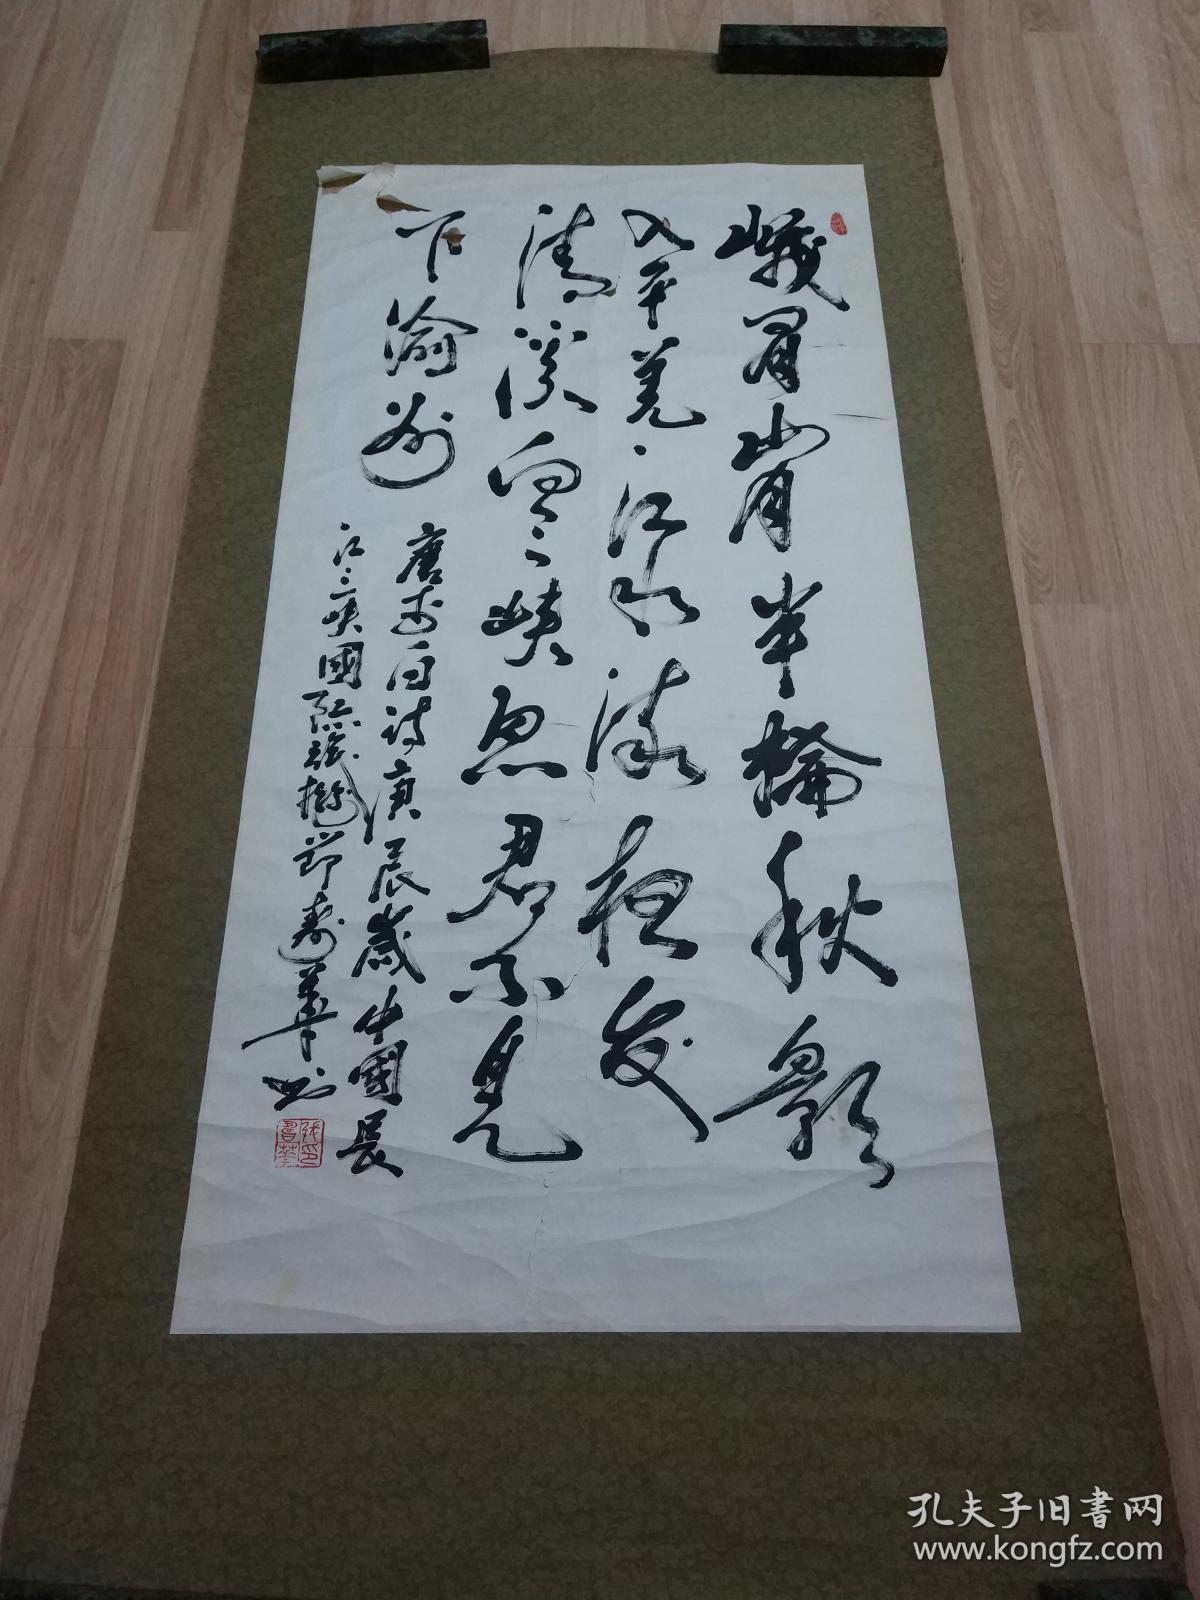 峨眉山月半輪秋影
入平羌江水流夜发
清溪向三峡思君不見
下渝州
唐李白诗庚辰歲中國長
江三峡國际旅游节壽華书
孔夫子旧書网
www.kongfz.com